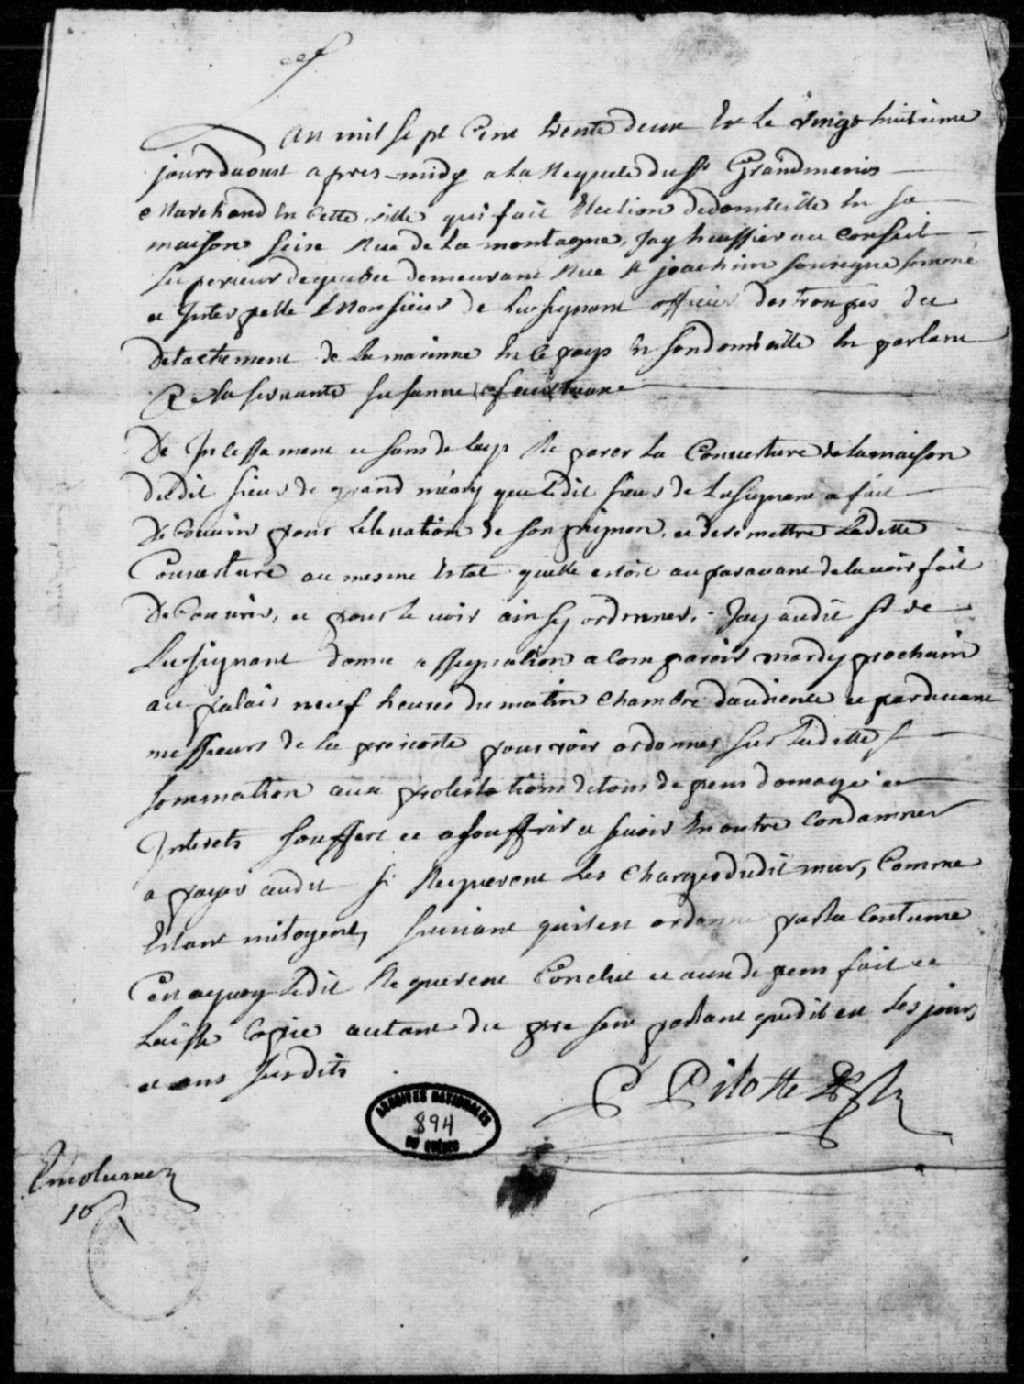 Lan mil sept cent trente deux et le vingt huitieme
jour daoust apres midy a la Requete du Sr Grandmenis
Marchand en cette ville qui fait Election de domicille en sa
maison seise Rue de la montagne, Jay huissier au conseil
superieur dequebec demeurant Rue St joachim soussigne sommé
et Interpellé Monsieur de Lusignant officier des troupes du
detachement de la marinne en ce pays en son domicille en parlant
A sa servante susanne
De Incessament et sans delay Reparer la Couverture de la maison
dudit sieur de grand méniy que ledit sieur de Lusignant a fait
decouvrir pour lelevation de son pignon, et de remettre ladette
Couverture au mesme Estat quelle estoit auparavant de lavoir fait
decouvrir, et pour le voir ainsy ordonner, Jay audit sr de
Lusignant donné assignation a comparoir mardy prochain
au palais neuf heures du matin chambre daudience et pardevant
messieurs de la prevosté pour voir ordonner sur ladette
sommation aux protestations de tous depens domages et
Interets souffert et a souffrir et se voir En outre condamner
a payer audit sr Requerent les charges dudit mur, Comme
Estant mitoyent, suivant quil est ordonné par la Coutume
Cest aquoy ledit Requerent Conclut et aux depens fait et
laissé Copie autant du present parlant que dit est les jour,
et ans susdits
P Pilotte
ARCHIVES NATIONALES
894
DU QUÉBEC